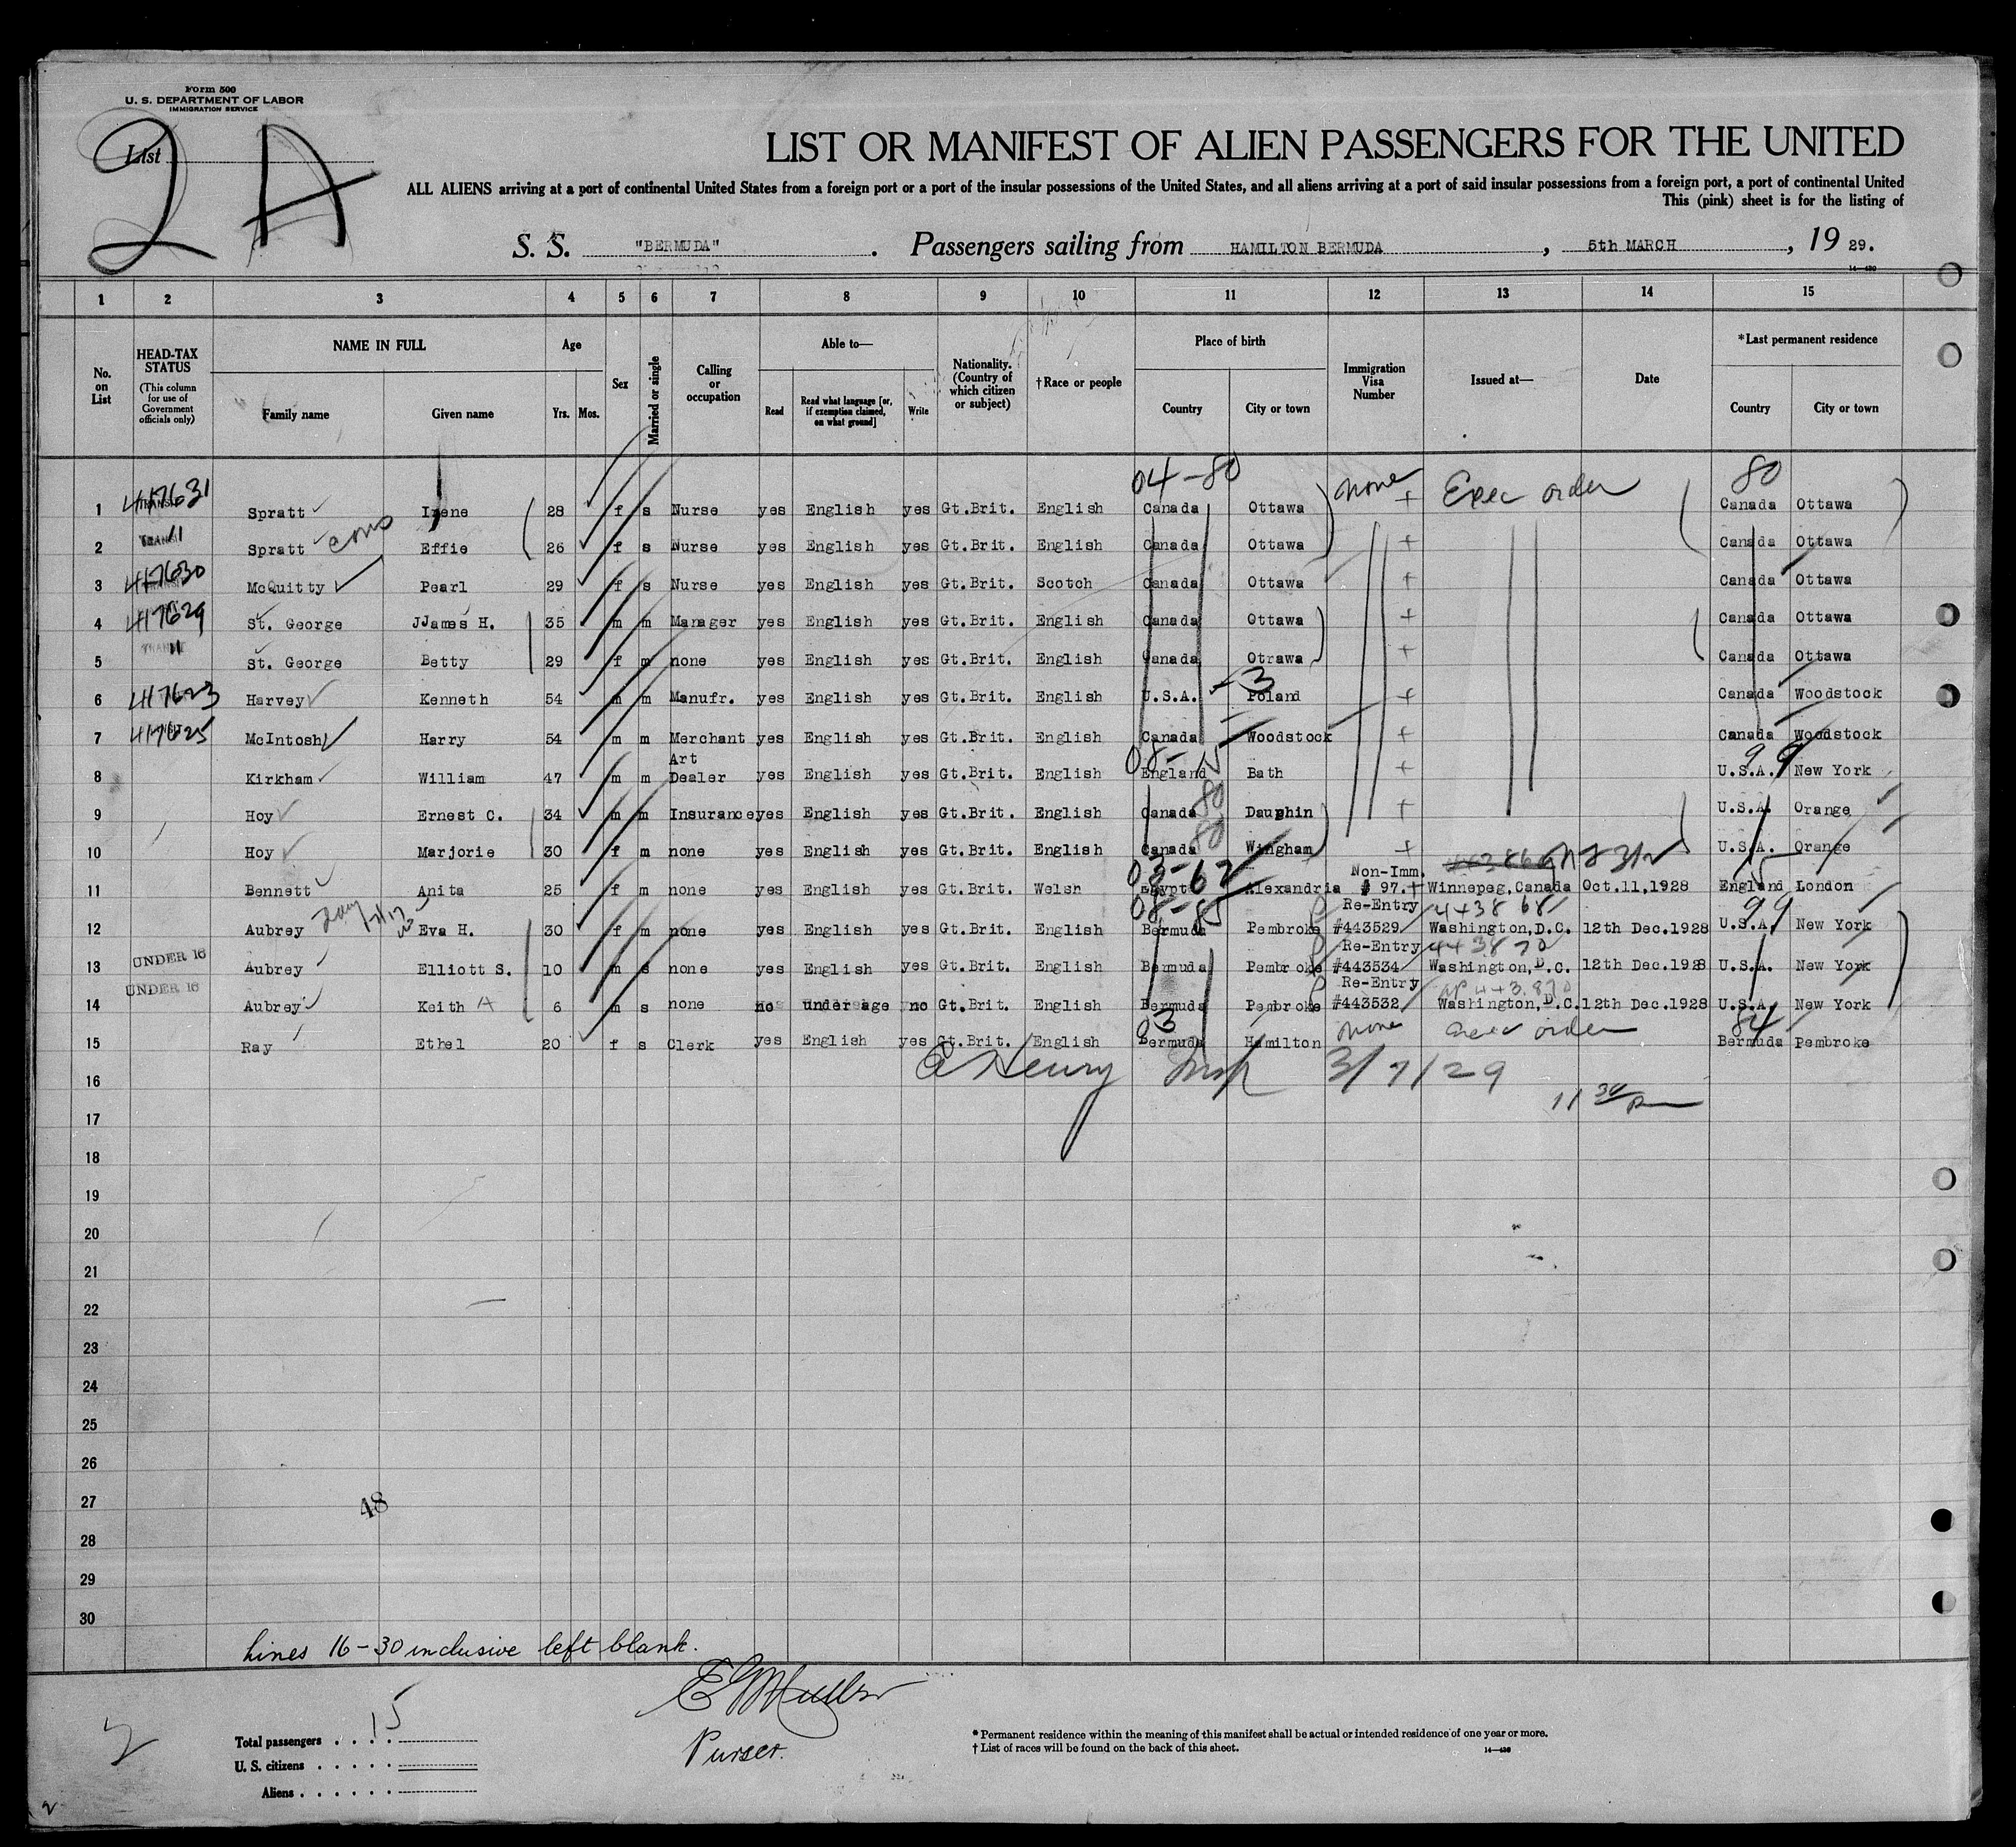 Form 500
U. S. DEPARTMENT OF LABOR
IMMIGRATION SERVICE
List
2 A
LIST OR MANIFEST OF ALIEN PASSENGERS FOR THE UNITED
ALL ALIENS arriving at a port of continental United States from a foreign port or a port of the insular possessions of the United States, and all aliens arriving at a port of said insular possessions from a foreign port, a port of continental United
This (pink) sheet is for the listing of
S. S. "BERMUDA". Passengers sailing from HAMILTON BERMUDA, 5th MARCH, 19 29.
1 2 3 4 5 6 7 8 9 10 11 12 13 14 15
No. on List
HEAD-TAX STATUS (This column for use of Government officials only)
NAME IN FULL Family name Given name
Age Yrs. Mos.
Sex
Married or single
Calling or occupation
Able to— Read Read what language [or, if exemption claimed, on what ground] Write
Nationality. (Country of which citizen or subject)
†Race or people
Place of birth Country City or town
Immigration Visa Number
Issued at—
Date
*Last permanent residence Country City or town
04-80 80
1 417631 Spratt Irene 28 f s Nurse yes English yes Gt.Brit. English Canada Ottawa none + Exec order Canada Ottawa
2 11 Spratt cons Effie 26 f s Nurse yes English yes Gt.Brit. English Canada Ottawa + Canada Ottawa
3 417630 McQuitty Pearl 29 f s Nurse yes English yes Gt.Brit. Scotch Canada Ottawa + Canada Ottawa
4 417629 St. George JJames H. 35 m m Manager yes English yes Gt.Brit. English Canada Ottawa + Canada Ottawa
5 TRANSIT 11 St. George Betty 29 f m none yes English yes Gt.Brit. English Canada Otrawa + Canada Ottawa
6 417623 Harvey Kenneth 54 m m Manufr. yes English yes Gt.Brit. English U.S.A. -3 Poland + Canada Woodstock
7 417625 McIntosh Harry 54 m m Merchant yes English yes Gt.Brit. English Canada Woodstock + Canada Woodstock
8 Kirkham William 47 m m Art Dealer yes English yes Gt.Brit. English 08-5 England Bath + 99 U.S.A. New York
9 Hoy Ernest C. 34 m m Insurance yes English yes Gt.Brit. English Canada 80 Dauphin + U.S.A. Orange
10 Hoy Marjorie 30 f m none yes English yes Gt.Brit. English Canada 80 Wingham + U.S.A. Orange
11 Bennett Anita 25 f m none yes English yes Gt.Brit. Welsh 03-62 Egypt Alexandria Non-Imm. # 97.+ Winnepeg,Canada Oct.11,1928 England London
12 Aubrey Eva H. 30 f m none yes English yes Gt.Brit. English 08-85 Bermuda Pembroke Re-Entry #443529 443868 Washington,D.C. 12th Dec.1928 99 U.S.A. New York
13 UNDER 16 Aubrey Elliott S. 10 m s none yes English yes Gt.Brit. English Bermuda Pembroke Re-Entry #443534 443870 Washington,D.C. 12th Dec.1928 U.S.A. New York
14 UNDER 16 Aubrey Keith A 6 m s none no under age no Gt.Brit. English Bermuda Pembroke Re-Entry #443532 Washington,D.C. 12th Dec.1928 U.S.A. New York
15 Ray Ethel 20 f s Clerk yes English yes Gt.Brit. English 03 Bermuda Hamilton none exec order 84 Bermuda Pembroke
16 Henry Insp 3/7/29
17 11 30 pm
18
19
20
21
22
23
24
25
26
27 48
28
29
30
Lines 16-30 inclusive left blank.
Purser.
2
Total passengers 15
U. S. citizens
Aliens
* Permanent residence within the meaning of this manifest shall be actual or intended residence of one year or more.
† List of races will be found on the back of this sheet.